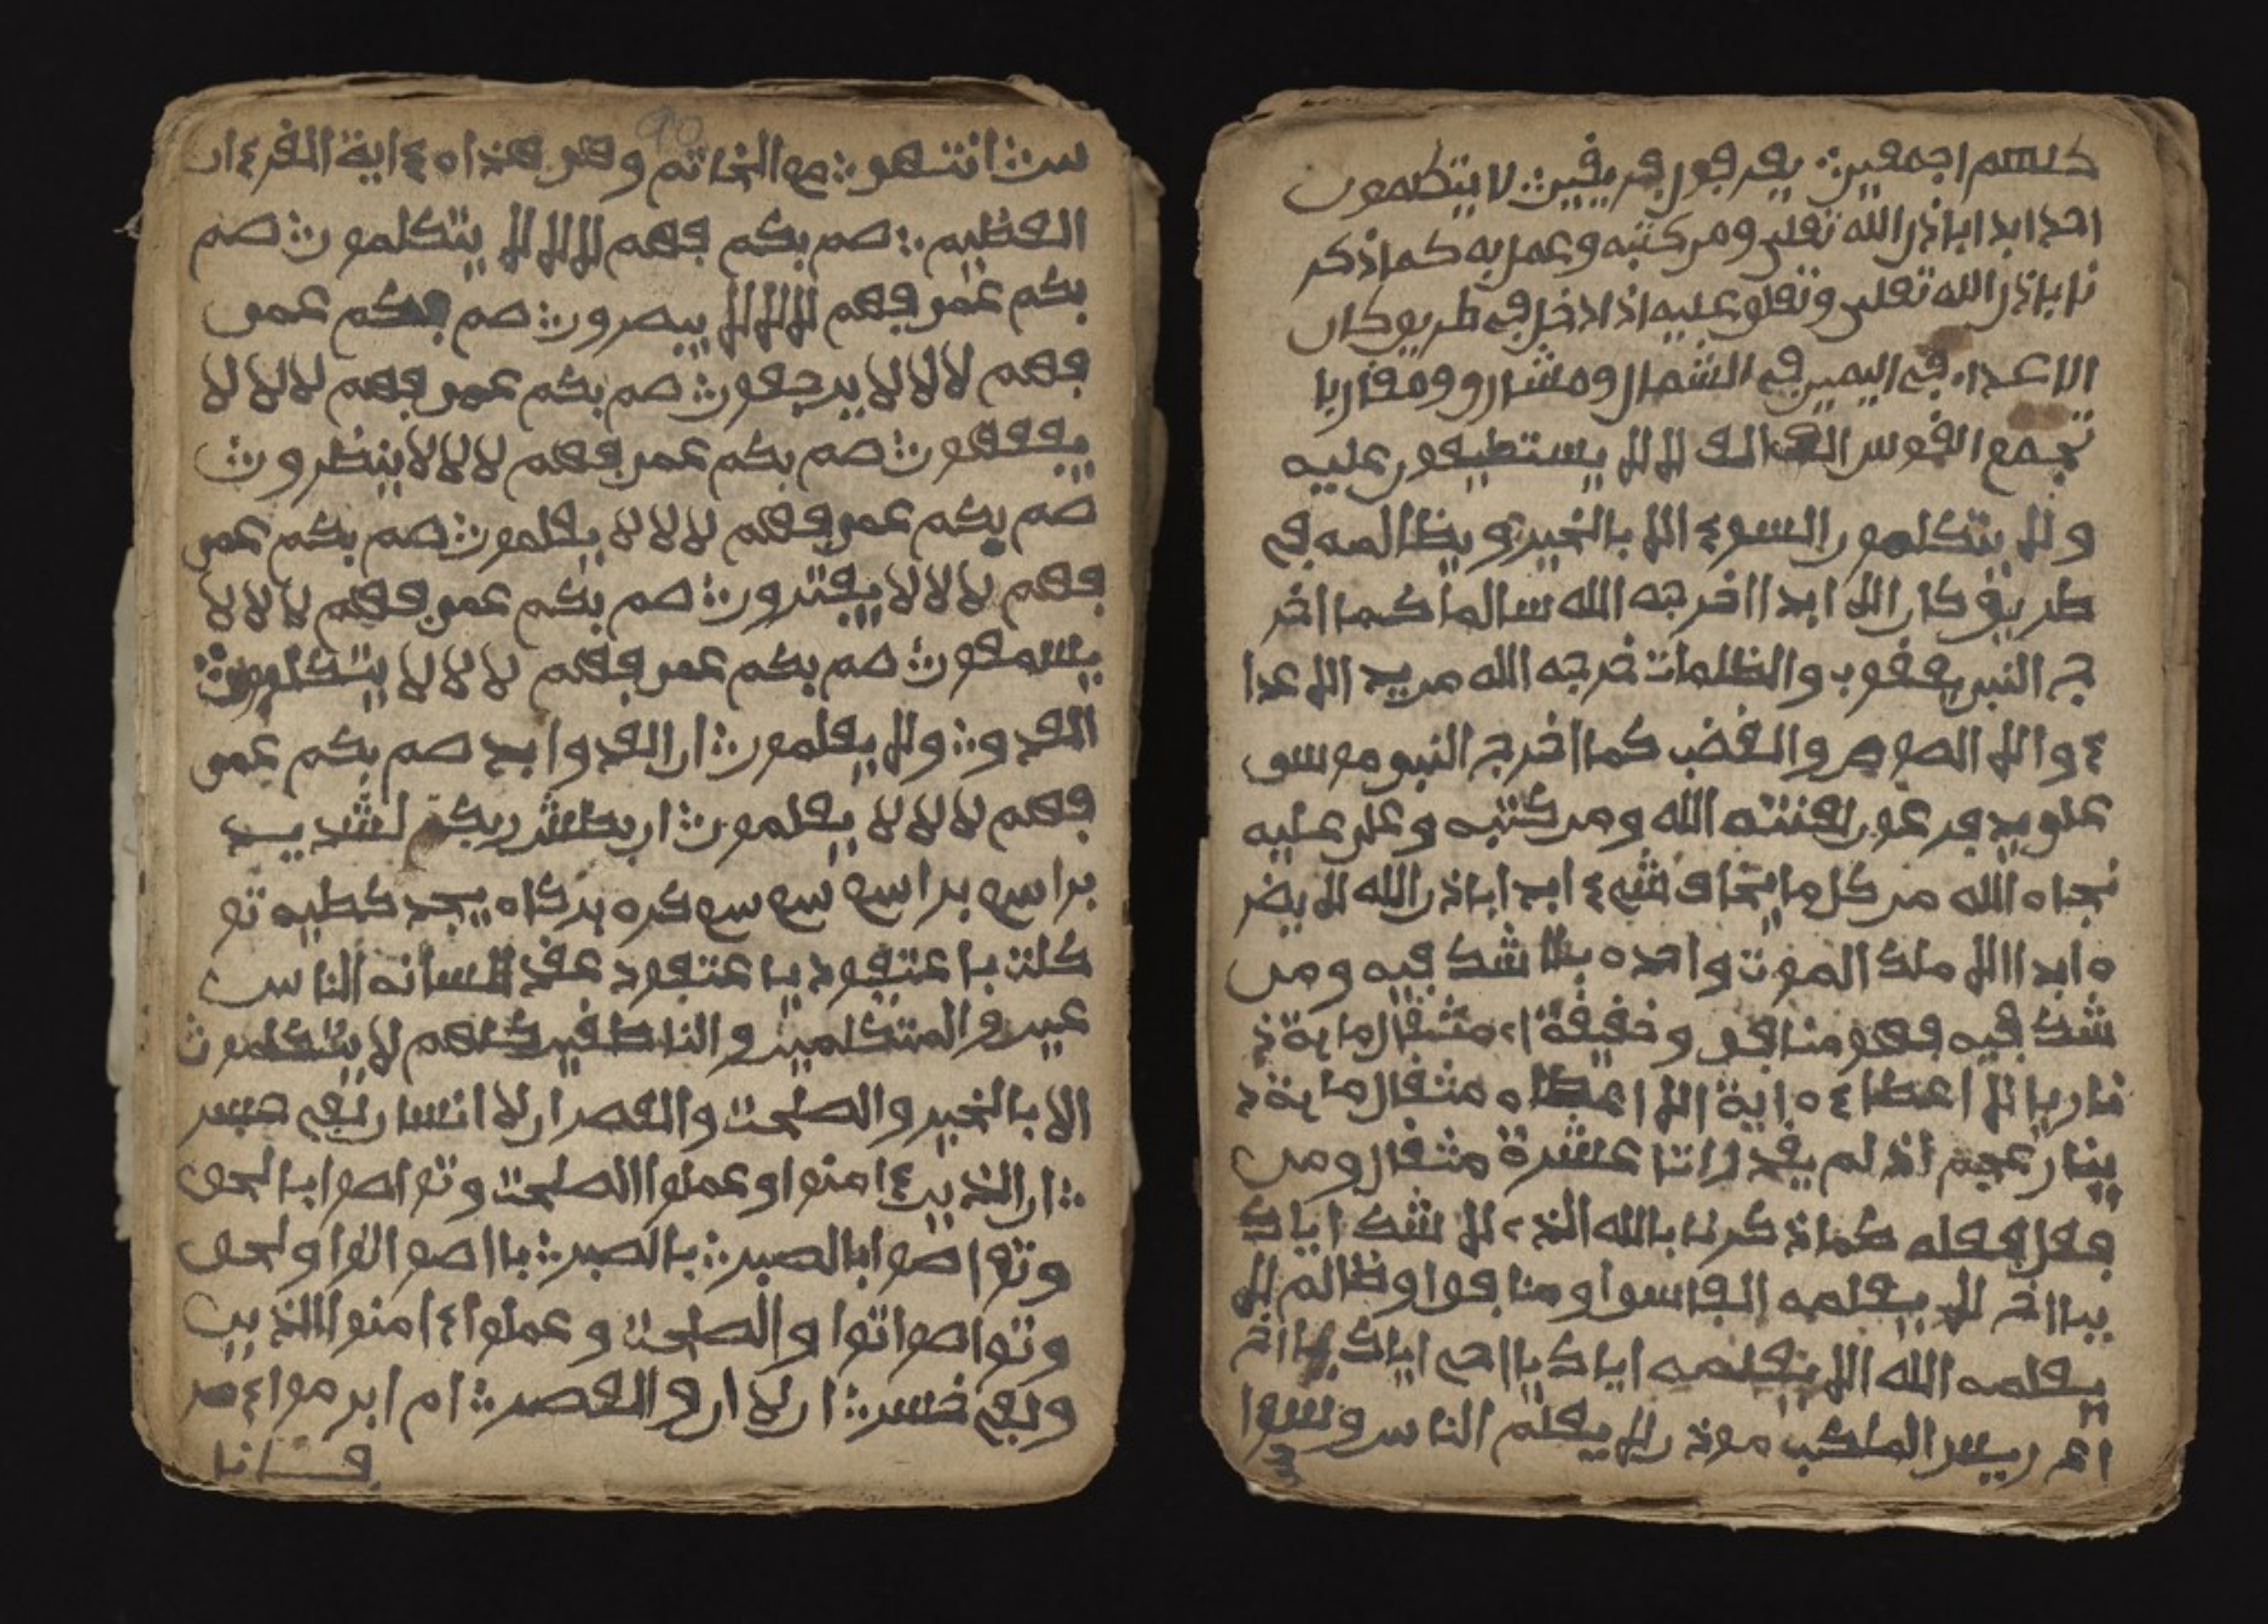 كلهم اجمعين ؞ يفرقون فريقين ؞ لا يتكلمون
احد ابدا باذن الله تعلى ومن كتبه وعمل به كما ذكر
نا باذن الله تعلى وتعلق عليه اذا دخل في طريق كان
الاعداء في اليمين في الشمال ومشارق ومغاربا
تجمع القوس الف الف لا لا يستطيعون عليه
ولا يتكلمون السوء الا بالخير ويظالمه في
طريق كان الا ابدا اخرجه الله سالما كما اخر
ج النبي يعقوب والظلمات خرجه الله من يد الاعدا
ء والا الصوص والغضب كما اخرج النبي موسى
على يد فرعون لعنته الله ومن كتبه وعلى عليه
نجاه الله من كل ما يخاف شيء ابدا باذن الله لا يضر
ه ابدا الا ملك الموت واحده بلا شك فيه ومن
شك فيه فهو منافق وخفيفة مثقال ماية ذ
ينار عجم اذ لم يقد لاتا عشرة مثقال ومن
فعل فعله كما ذكرنا بالله الذي لا شك اياك
يااخ لا يعلمه الفاسوا ومنافقوا وظالم لا
يعلمه الله الا يعلمه اياك يا احي اياك يااخ
اعى رييس الملكب موذ لا يعلم الناس وسوا
س ؞ انتهى ؞ مع الخاتم وهو هذا ه ءاية القرءان
العظيم ؞ صم بكم فهم لا لا لا يتكلمون ؞ صم
بكم عمى فهم لا لا لا يبصرون ؞ صم بكم عمى
فهم لا لا لا يرجعون ؞ صم بكم عمى فهم لا لا لا
يفقهون ؞ صم بكم عمى فهم لا لا لا ينظرون ؞
صم بكم عمى فهم لا لا لا يعلمون ؞ صم بكم عمى
فهم لا لا لا يفترون ؞ صم بكم عمى فهم لا لا لا
يسمعون ؞ صم بكم عمى فهم لا لا لا يتكلمون ؞
العدو ؞ ولا يعلمون ؞ ان العدو ابد صم بكم عمى
فهم لا لا لا يعلمون ؞ ان بطش ربكم لشديد
براسع براسع سع سع كره بركاه يجد كطيه تو
كلت يا عتقود يا عتقود عقد لسانه الناس
عين والمتكلمين والناطقين كلهم لا يتكلمون
الا بالخير والصلحت والعصر ان لا انسان لفي خسر
؞ ان الذين ءامنوا وعملوا الصلحت وتواصوا بالحق
وتواصوا بالصبر ؞ بالصبر ؞ بااصوا اتوا ولحق
وتواصوا توا والصلحت وعملوا ءامنوا الذين
ولفي خسر ؞ ان لا ان والعصر ؞ ام ابرموا ءامر
فانا